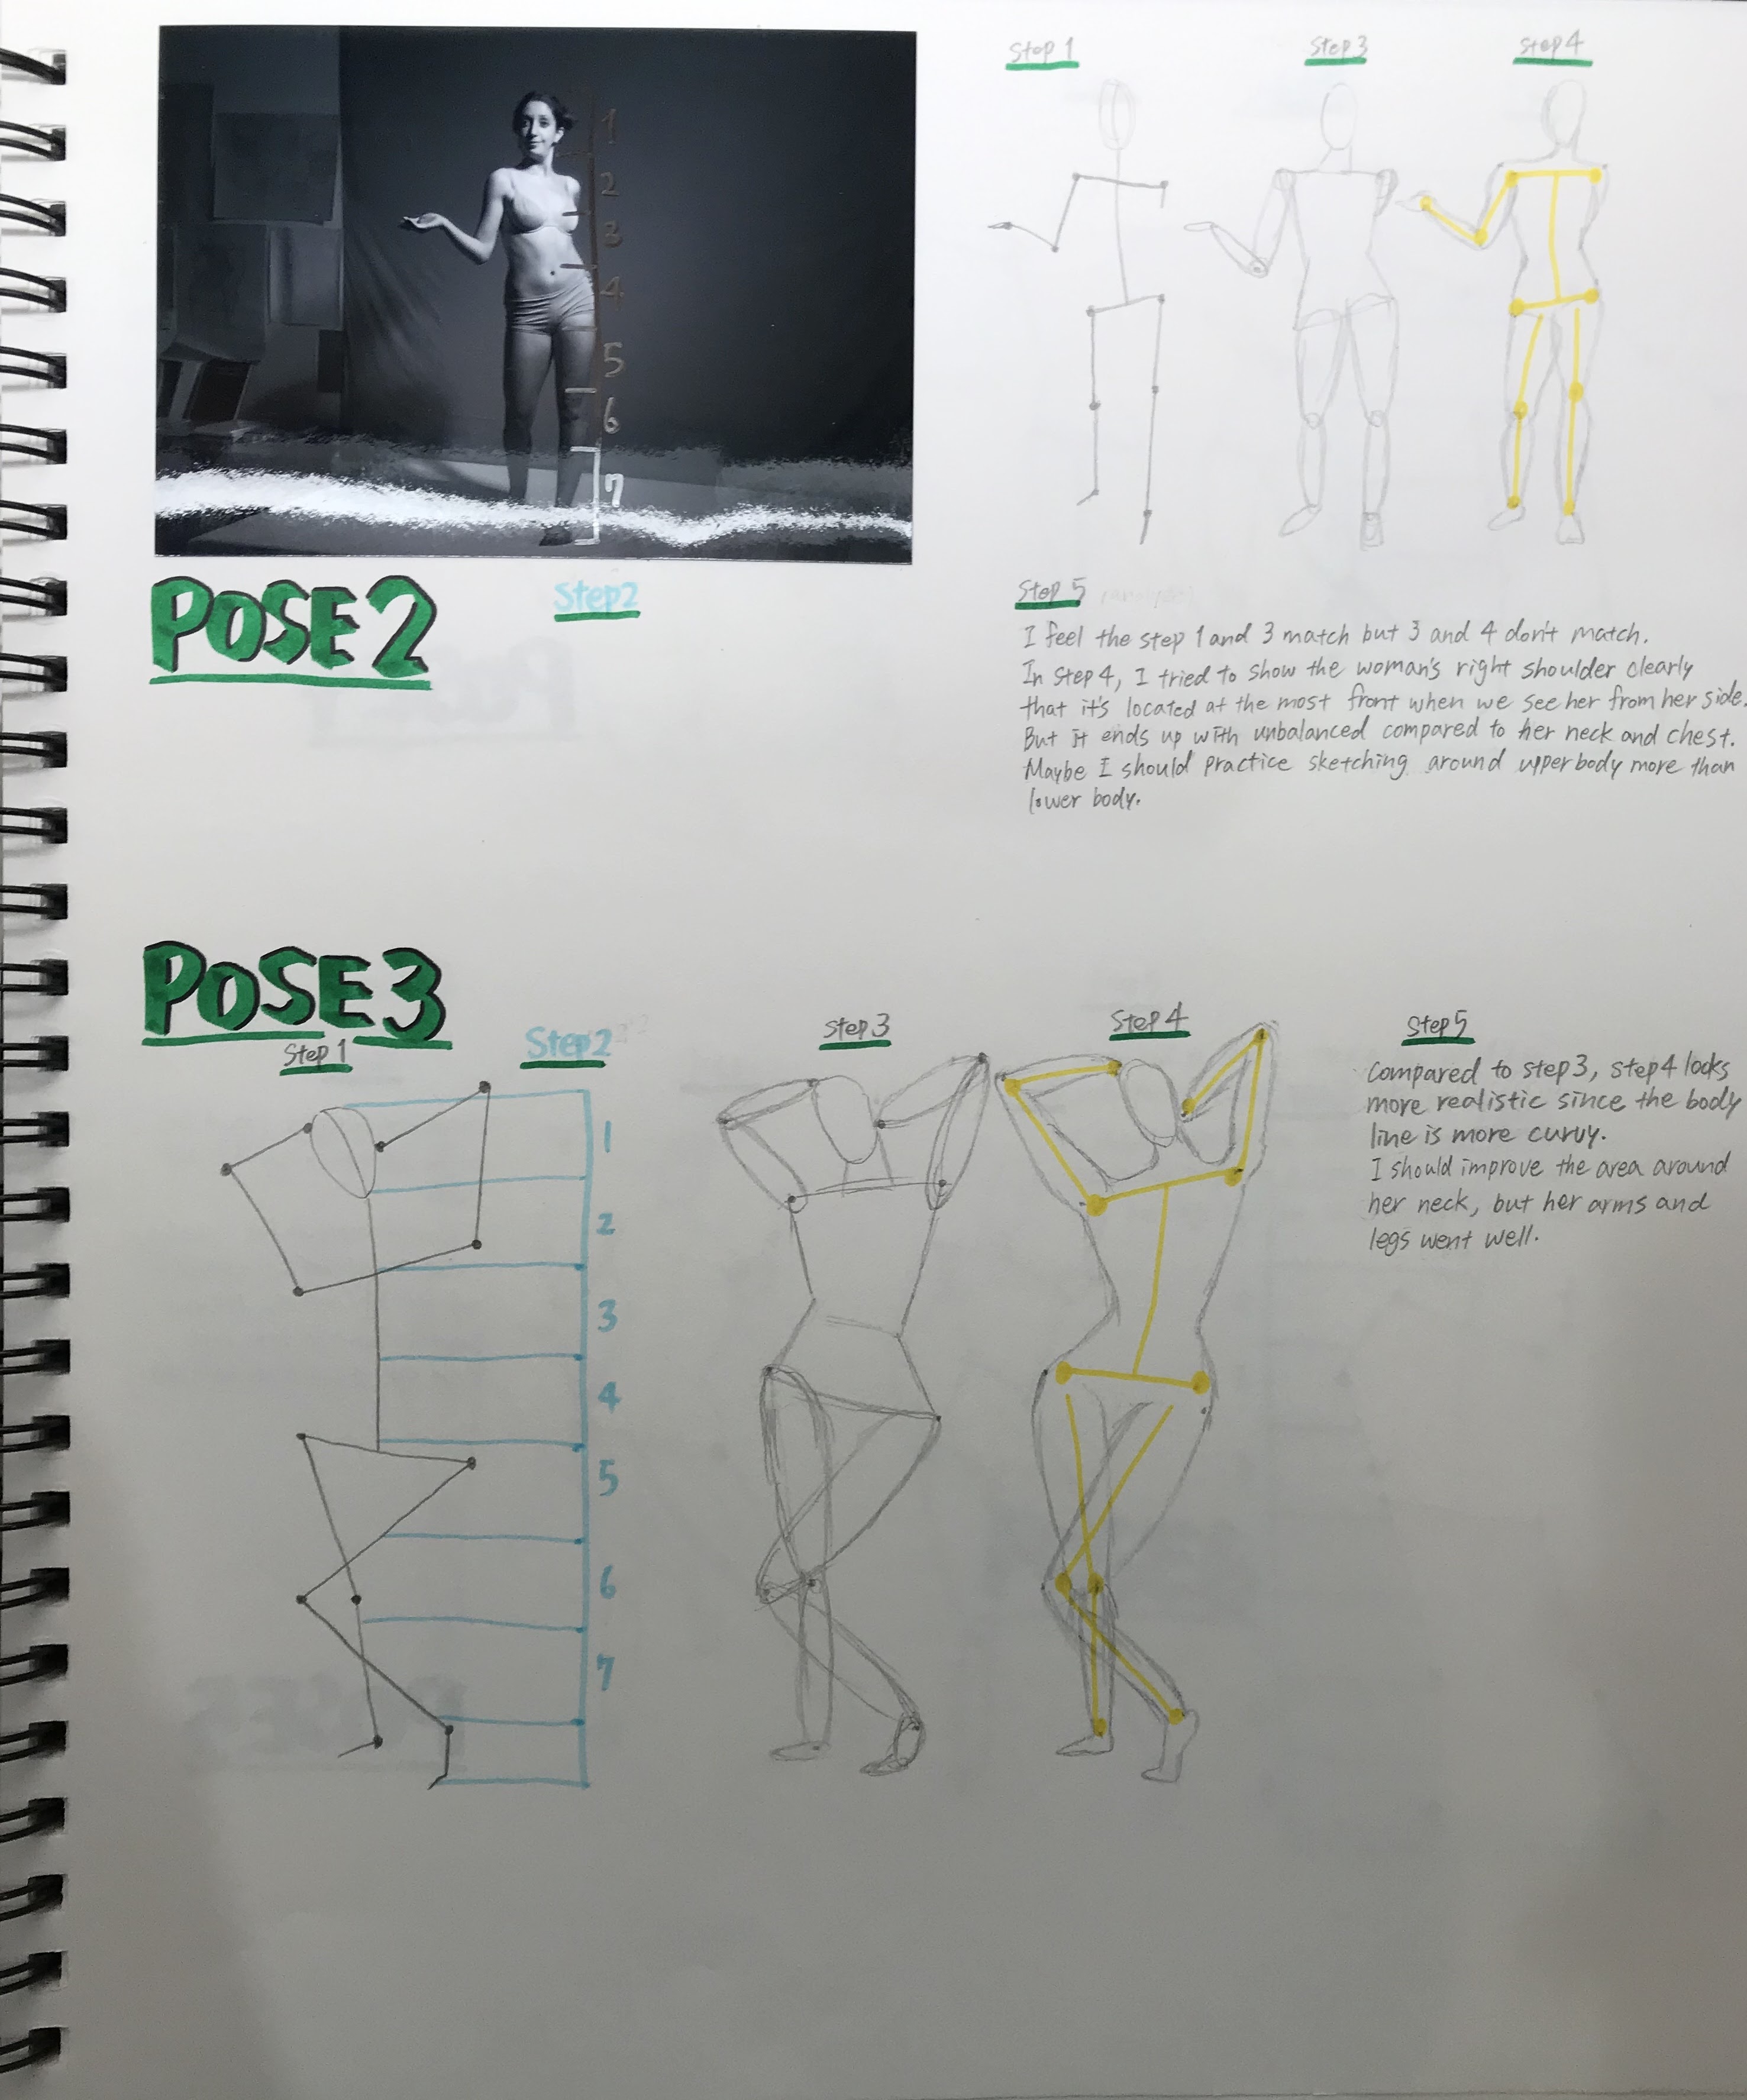 1
2
3
4
5
6
7
Step 1
Step 3
Step 4
POSE 2
Step2
Step 5
I feel the step 1 and 3 match but 3 and 4 don't match.
In step 4, I tried to show the woman's right shoulder clearly
that it's located at the most front when we see her from her side.
But it ends up with unbalanced compared to her neck and chest.
Maybe I should practice sketching around upperbody more than
lower body.
POSE 3
Step 1
Step2
1
2
3
4
5
6
7
Step 3
Step 4
Step 5
Compared to step 3, step 4 looks
more realistic since the body
line is more curvy.
I should improve the area around
her neck, but her arms and
legs went well.